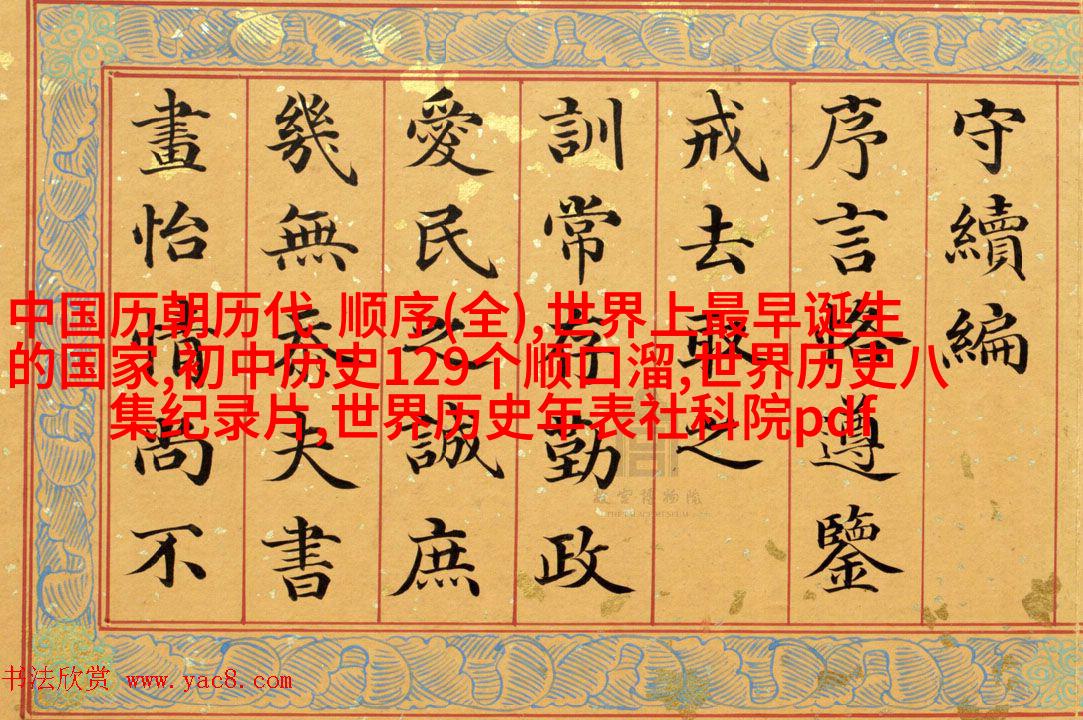 守續編
序言恪遵鑒
戒去取之
訓常存勤政
愛民之誠庶
幾無忝夫書
畫怡情尚不
中国历朝历代 顺序(全),世界上最早诞生
的国家,初中历史129个顺口溜,世界历史八
集纪录片,世界历史年表社科院pdf
故宫博物院
THE PALACE MUSEUM
书法欣赏 www.yac8.com